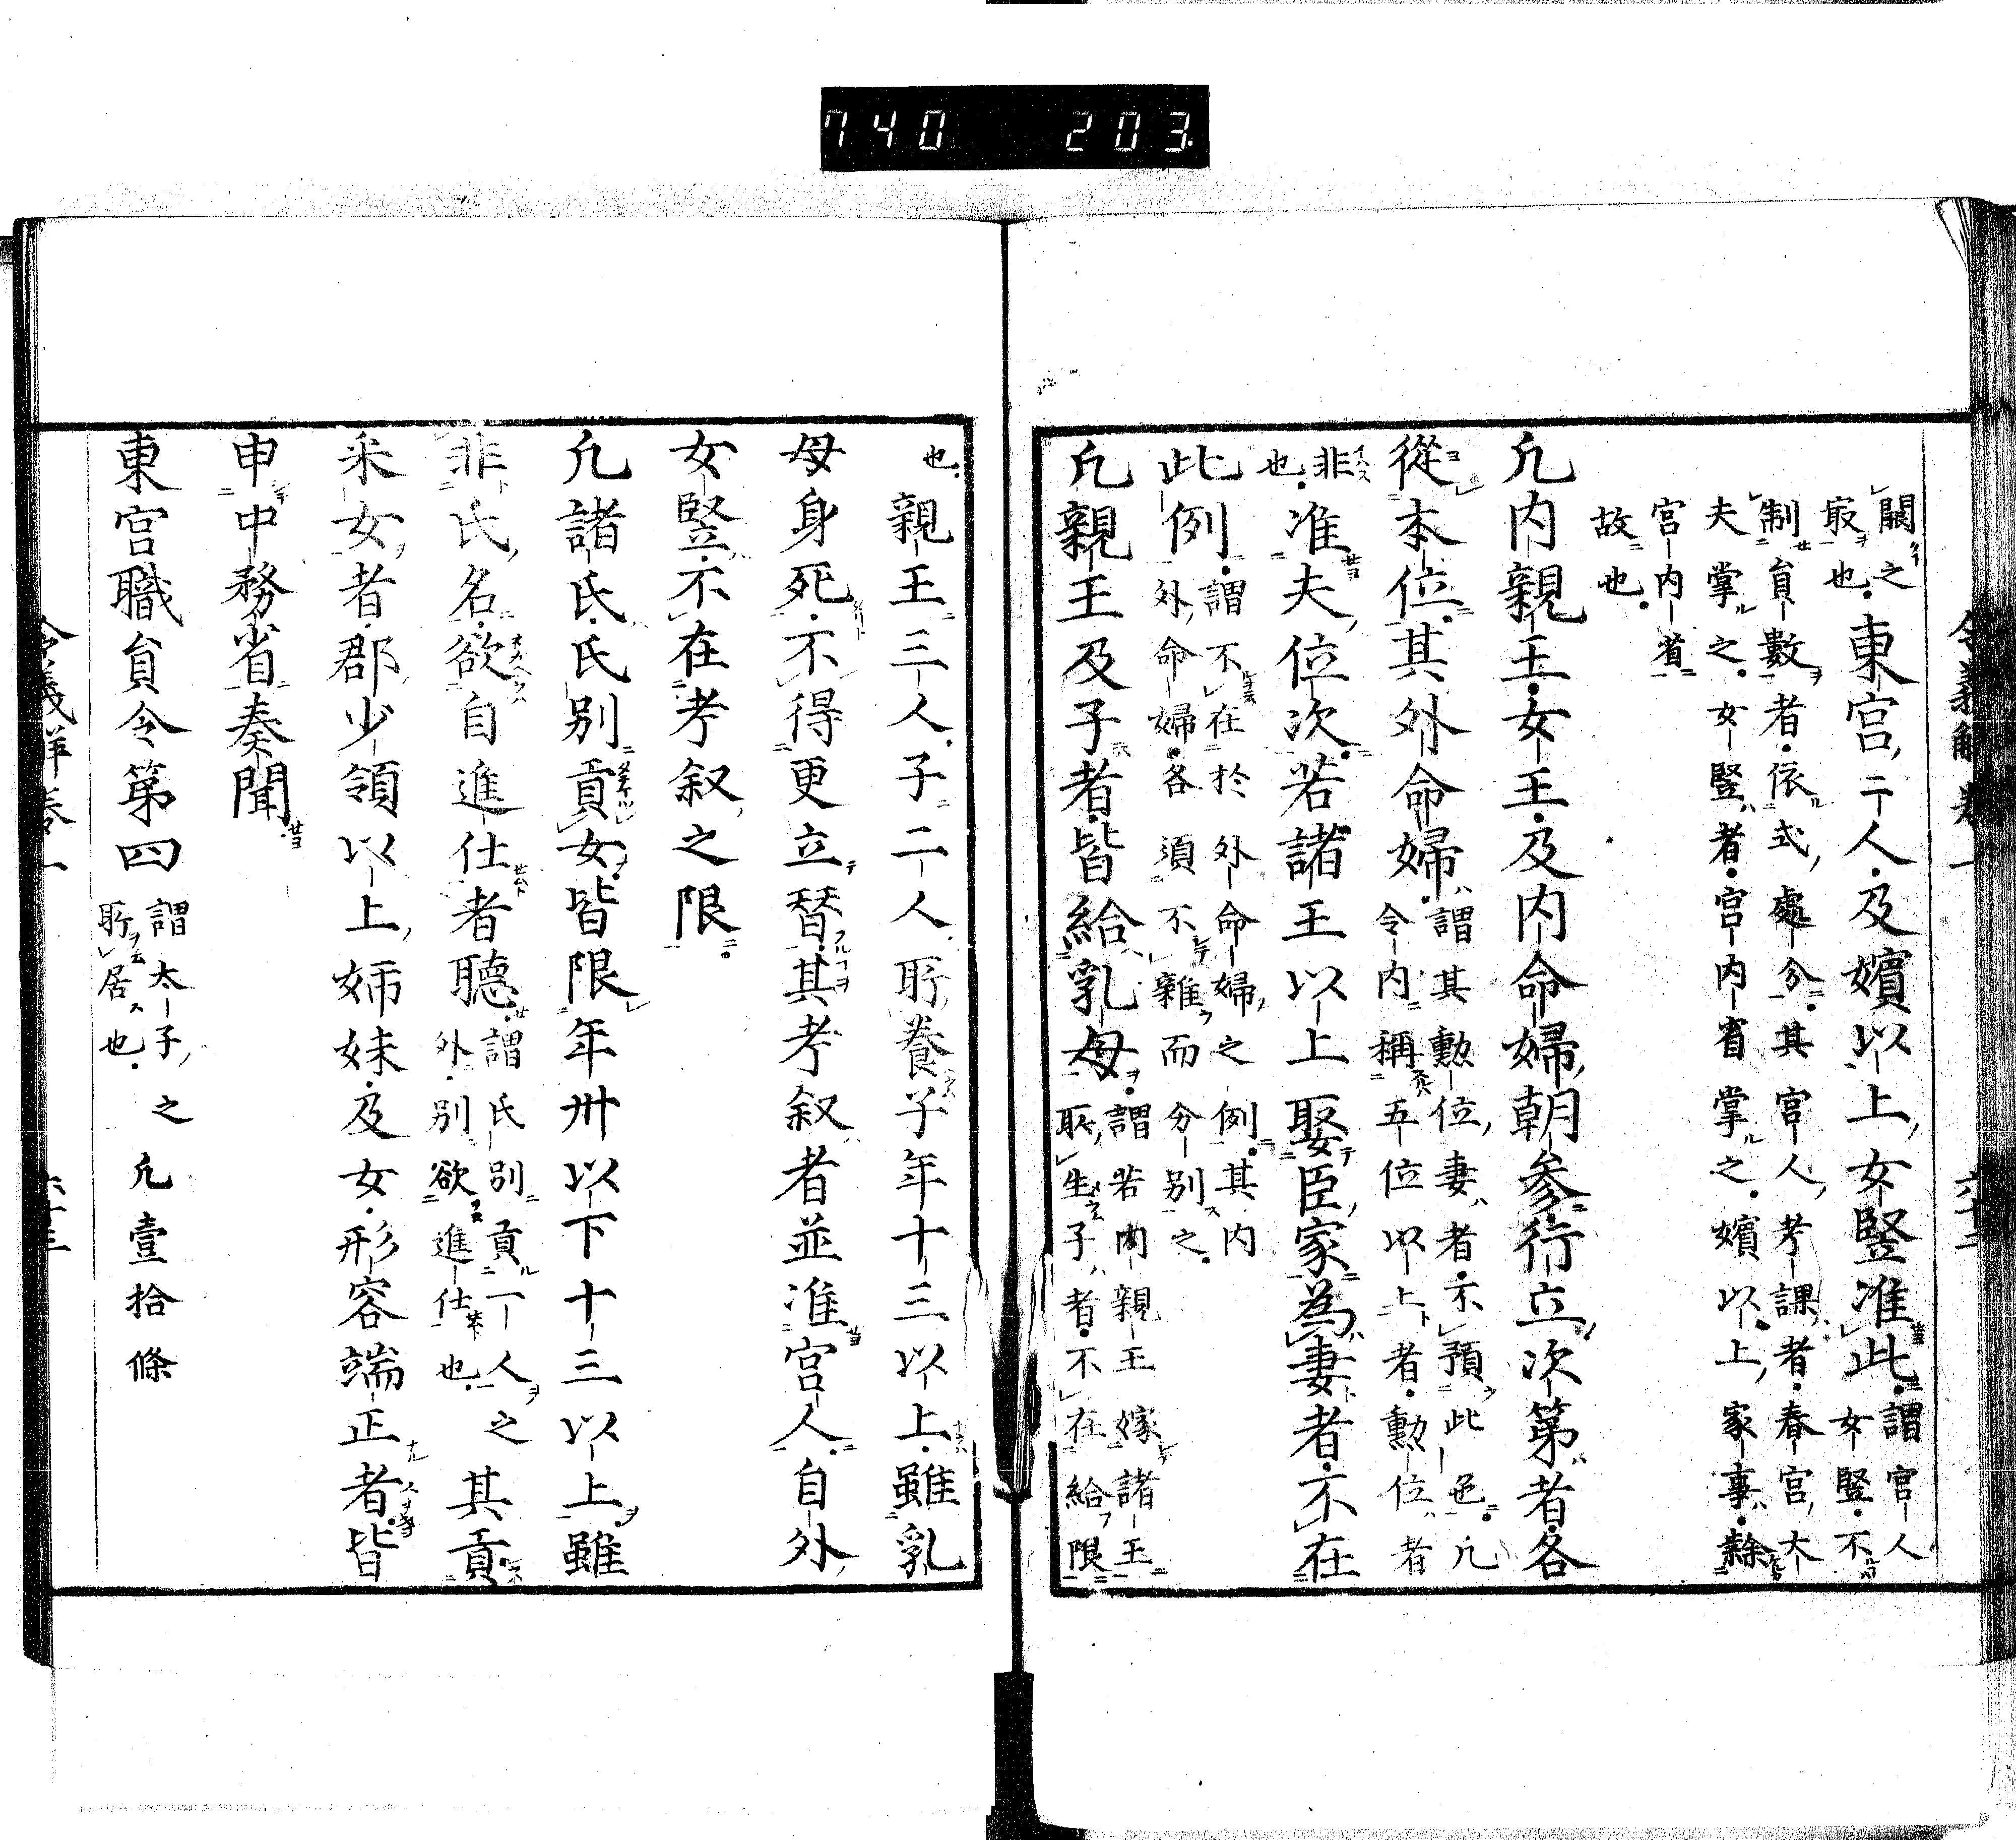 740 203.
令義解卷一 六十二
闕之
最也。東宮二人及嬪以上女竪准此。謂宮人
女竪不
制員數者。依式處分。其宮人考課者。春宮大
夫掌之。女竪者。宮内省掌之。嬪以上家事。隸
宮内省
故也。
凡内親王女王及内命婦朝參行立次第者各
從本位其外命婦。謂其勲位妻者不預此色。凡
令内稱五位以上者。勲位者
非
也。准夫位次若諸王以上娶臣家為妻者。不在
此例。謂不在於外命婦之例。其内
外命婦。各須不雜而分別之。
凡親王及子者皆給乳母。謂若内親王嫁諸王
所生子者。不在給限
也。親王三人子二人所養子年十三以上雖乳
母身死。不得更立替其考叙者並准宮人自外
女竪不在考叙之限
凡諸氏氏別貢女皆限年卅以下十三以上雖
非氏名欲自進仕者聽。謂氏別貢一人之
外。別欲進仕也。其貢
采女者。郡少領以上姉妹及女形容端正者皆
申中務省奏聞
東宮職員令第四 謂太子之
所居也。凡壹拾條
令義解卷一 六十三